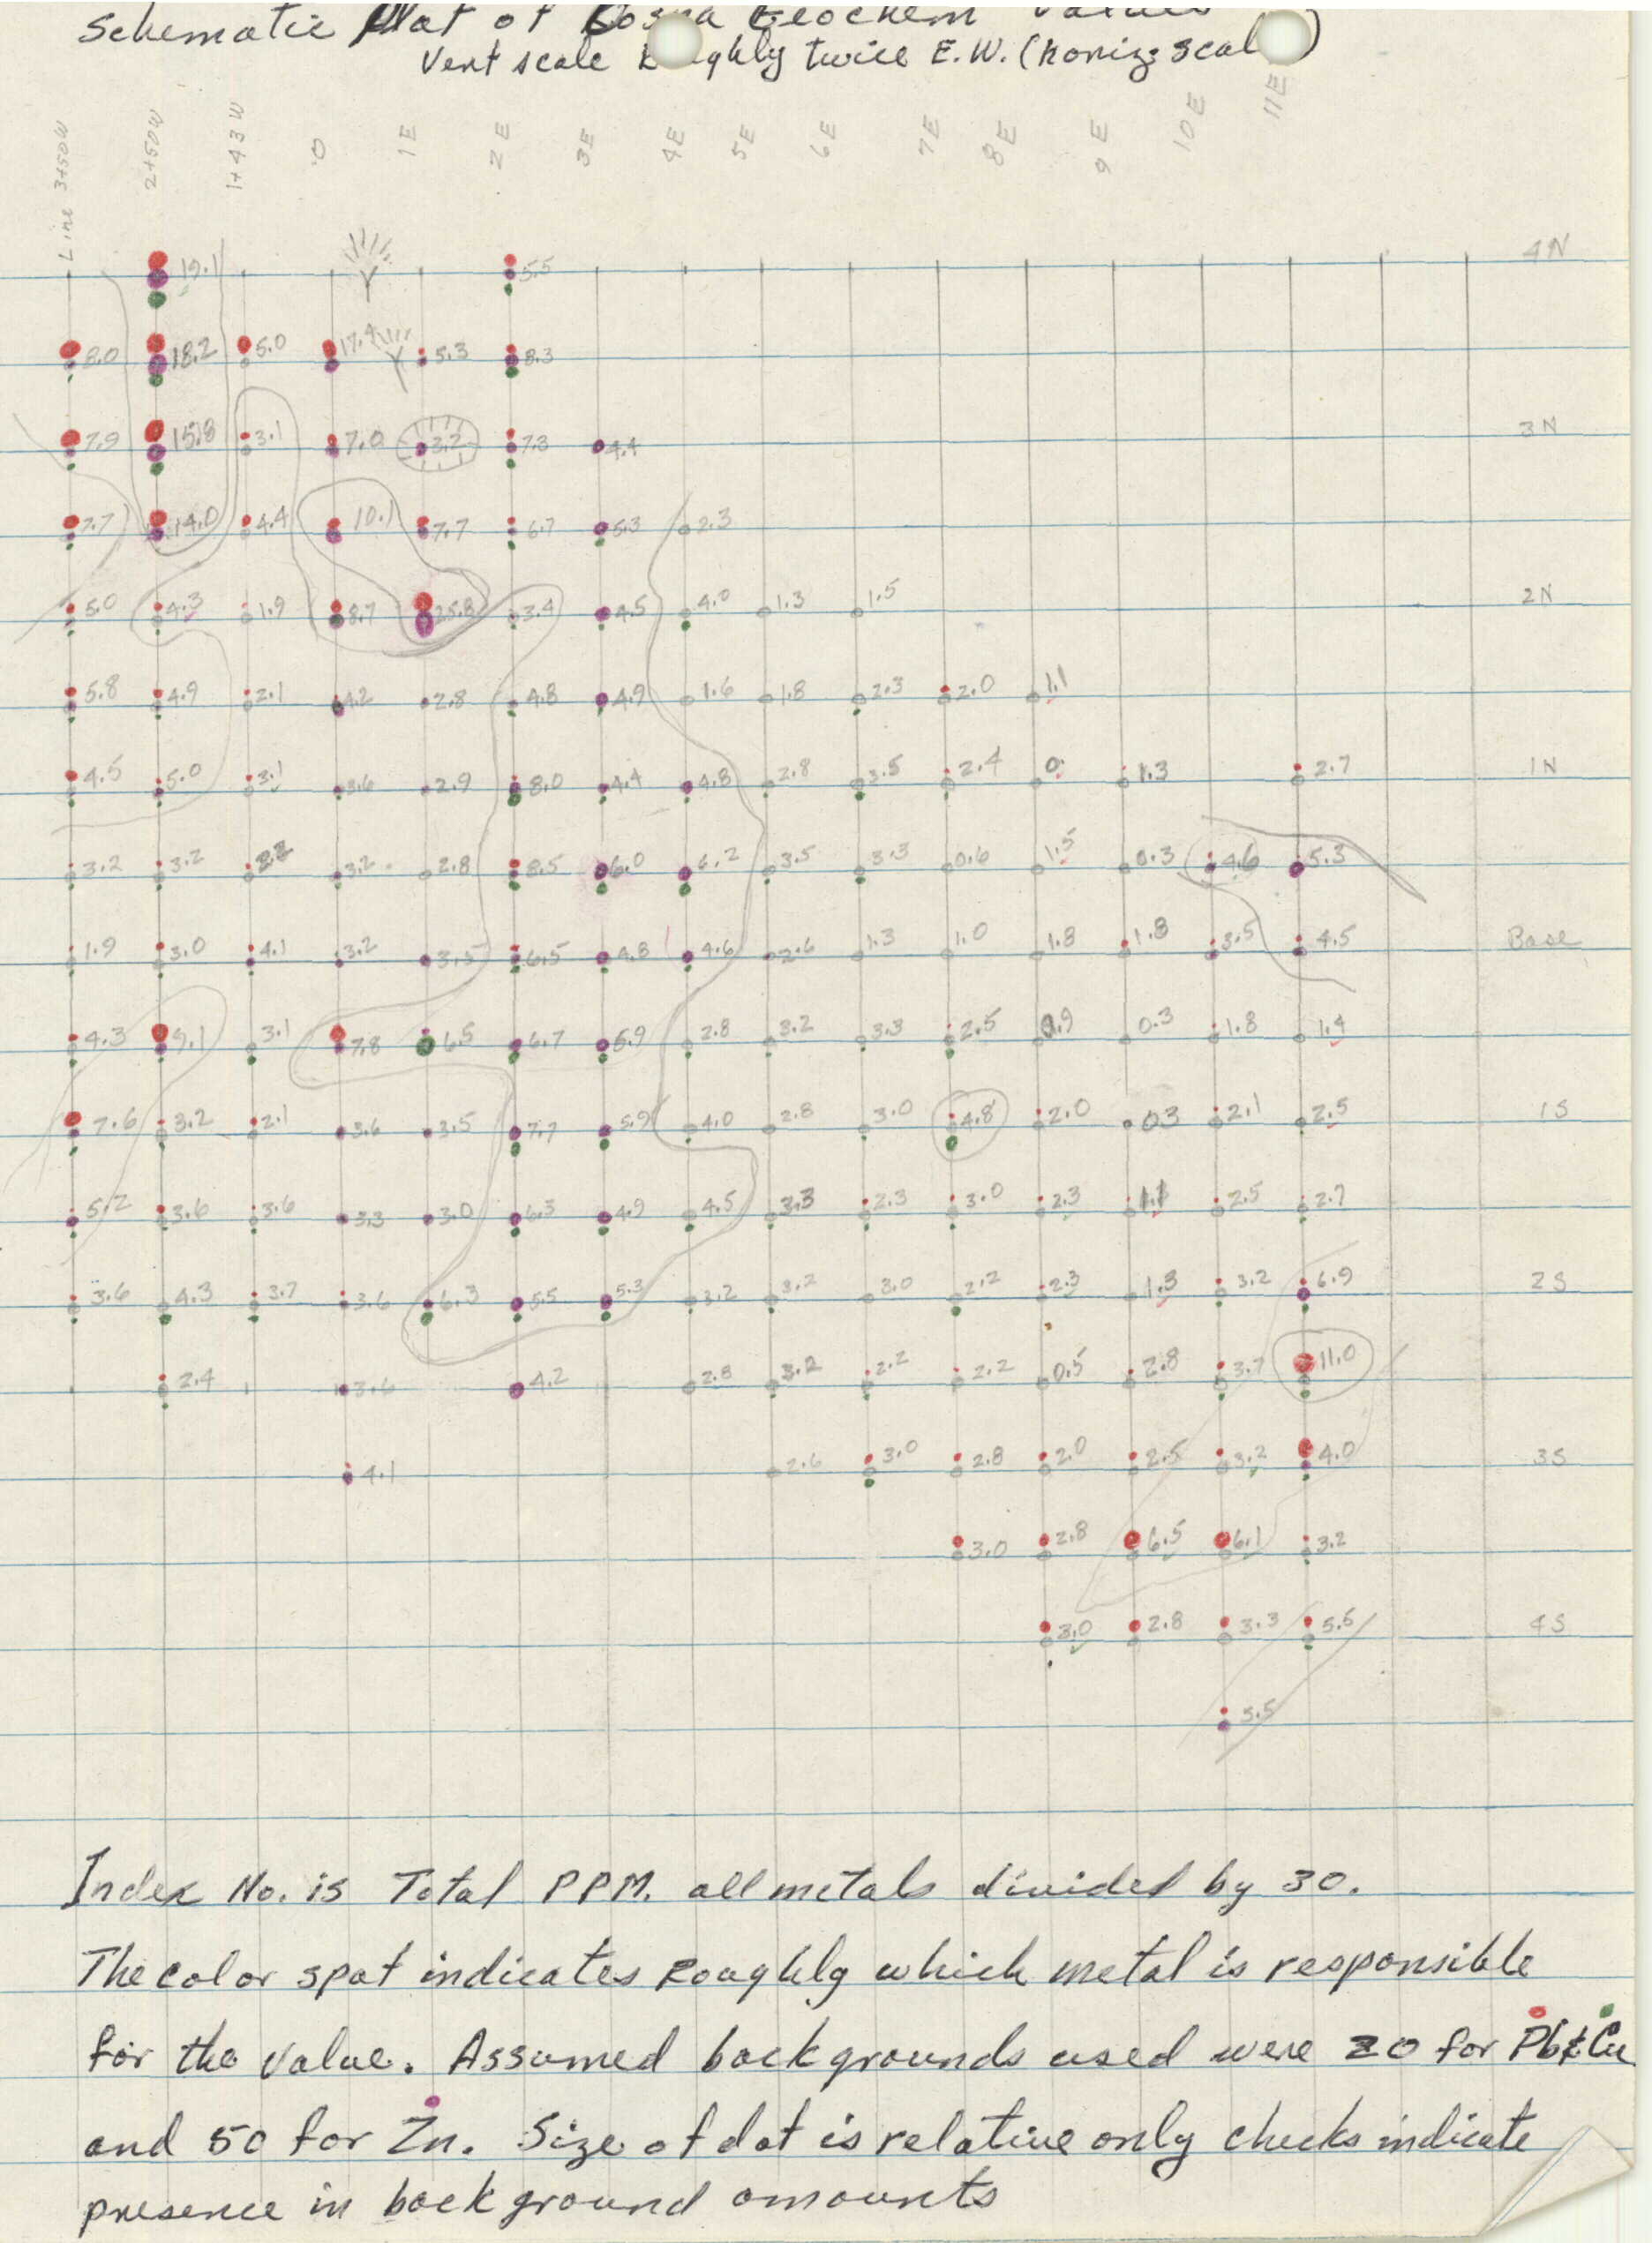 Schematic Plat of Geochem Values
Vert scale twice E.W. (horiz. scale)
Line 3+50W 2+50W 1+43W 0 1E 2E 3E 4E 5E 6E 7E 8E 9E 10E 11E
19.1 5.5 4N
8.0 18.2 5.0 17.4 5.3 8.3
7.9 15.8 3.1 7.0 3.2 7.3 4.4 3N
7.7 14.0 4.4 10.1 7.7 6.7 5.3 2.3
5.0 4.3 1.9 8.7 25.8 3.4 4.5 4.0 1.3 1.5 2N
5.8 4.9 2.1 4.2 2.8 4.8 4.9 1.6 1.8 2.3 2.0 1.1
4.5 5.0 3.1 3.6 2.9 8.0 4.4 4.8 2.8 3.5 2.4 0 1.3 2.7 1N
3.2 3.2 3.2 2.8 8.5 6.0 6.2 3.5 3.3 0.6 1.5 0.3 4.6 5.3
1.9 3.0 4.1 3.2 3.5 6.5 4.8 4.6 2.6 1.3 1.0 1.8 1.8 3.5 4.5 Base
4.3 9.1 3.1 7.8 6.5 6.7 5.9 2.8 3.2 3.3 2.5 0.9 0.3 1.8 1.4
7.6 3.2 2.1 3.6 3.5 7.7 5.9 4.0 2.8 3.0 4.8 2.0 0.3 2.1 2.5 1S
5.2 3.6 3.6 3.3 3.0 6.3 4.9 4.5 3.3 2.3 3.0 2.3 1.1 2.5 2.7
3.6 4.3 3.7 3.6 6.3 5.5 5.3 3.2 3.2 3.0 2.2 2.3 1.3 3.2 6.9 2S
2.4 3.6 4.2 2.8 3.2 2.2 2.2 0.5 2.8 3.7 11.0
4.1 2.6 3.0 2.8 2.0 2.5 3.2 4.0 3S
3.0 2.8 6.5 6.1 3.2
3.0 2.8 3.3 5.5 4S
3.5
Index No. is Total PPM. all metals divided by 30.
The color spot indicates Roughly which metal is responsible
for the value. Assumed backgrounds used were 20 for Pb & Cu
and 50 for Zn. Size of dot is relative only checks indicate
presence in background amounts